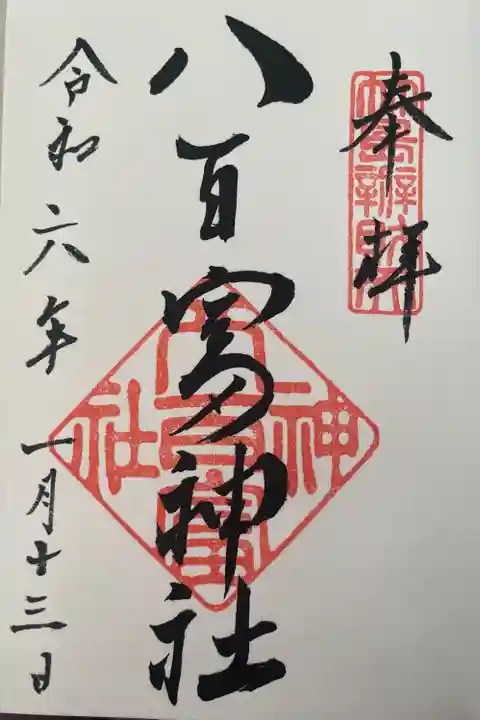 奉拝
八百富神社
八百富神社
令和六年一月十三日